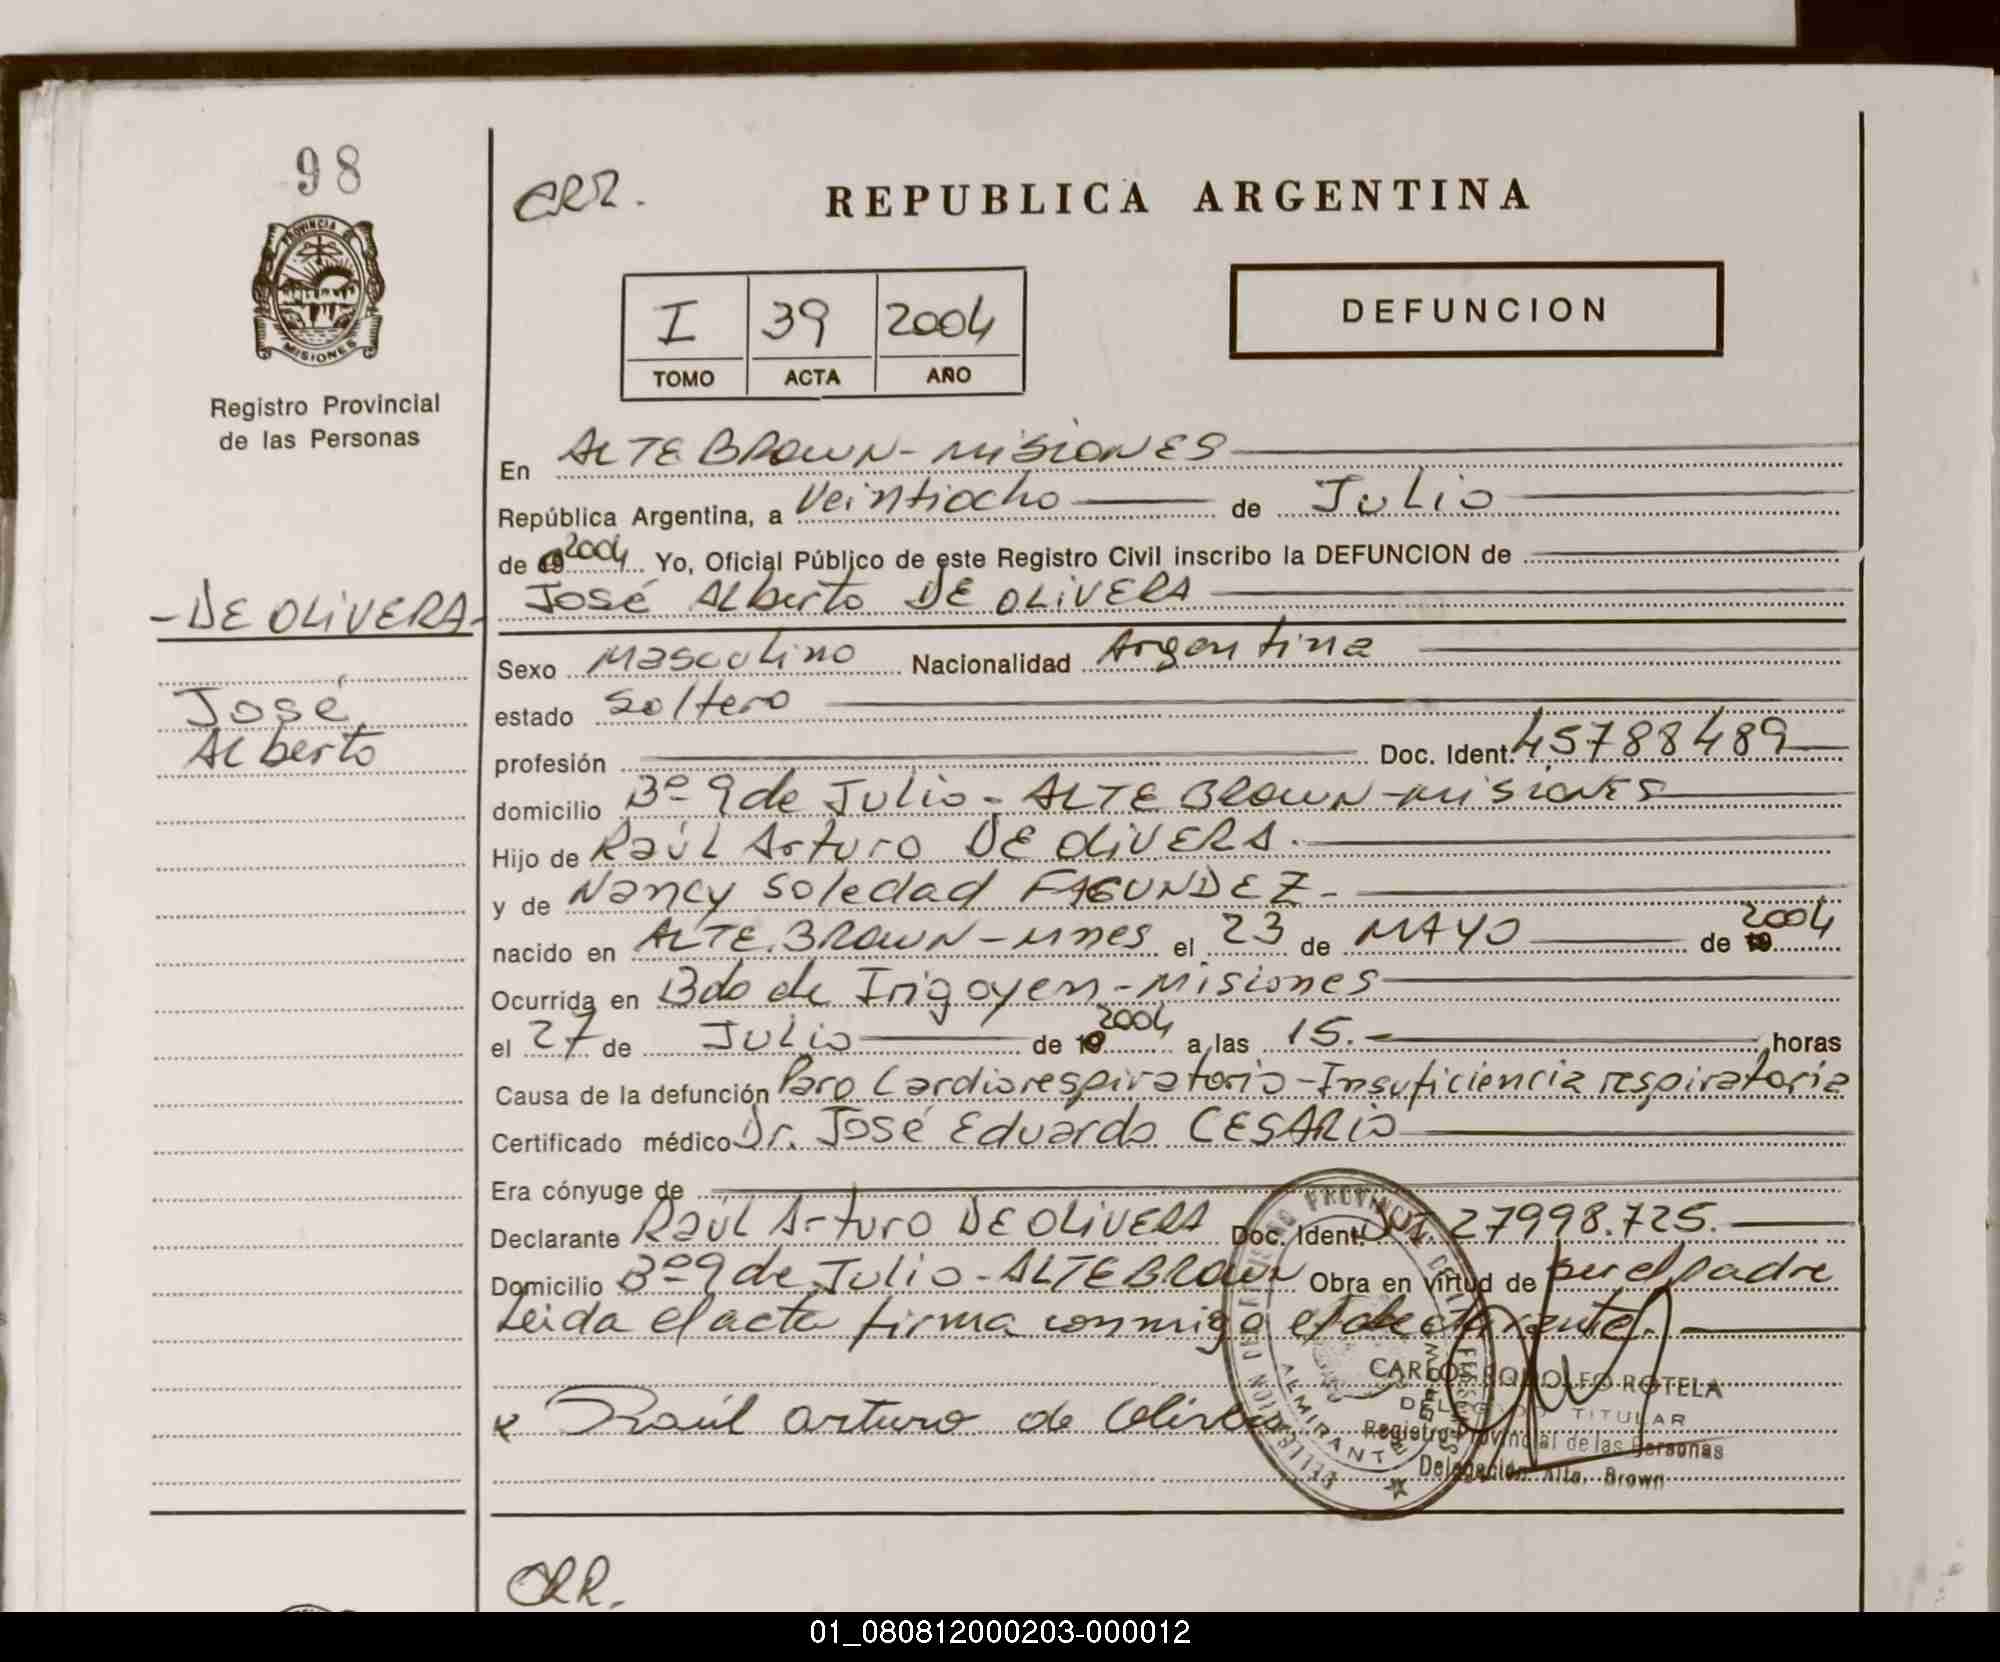 98
PROVINCIA DE
MISIONES
Registro Provincial
de las Personas
CRR.
REPUBLICA ARGENTINA
I 39 2004
TOMO ACTA AÑO
DEFUNCION
En ALTE BROWN - MISIONES
República Argentina, a Veintiocho de Julio
de 19 2004 Yo, Oficial Público de este Registro Civil inscribo la DEFUNCION de
- DE OLIVERA - José Alberto DE OLIVERA
Sexo Masculino Nacionalidad Argentina
José estado soltero
Alberto profesión Doc. Ident. 45788489
domicilio Bº 9 de Julio - ALTE BROWN - MISIONES
Hijo de Raúl Arturo DE OLIVERA.
y de Nancy Soledad FAGUNDEZ -
nacido en ALTE. BROWN - Mnes el 23 de MAYO de 19 2004
Ocurrida en Bdo de Irigoyen - Misiones
el 27 de Julio de 19 2004 a las 15.- horas
Causa de la defunción Paro Cardiorespiratorio - Insuficiencia respiratoria
Certificado médico Dr. José Eduardo CESARIO
Era cónyuge de
Declarante Raúl Arturo DE OLIVERA Doc. Ident. 27998.725.
Domicilio Bº 9 de Julio - ALTE BROWN Obra en virtud de ser el padre
Leida el acta firma conmigo el declarante.
CARLOS RODOLFO ROTELA
DELEGADO TITULAR
x Raúl arturo de Olivera
Registro Provincial de las Personas
Delegación Alte. Brown
ALMIRANTE BROWN
CRR.
01_080812000203-000012